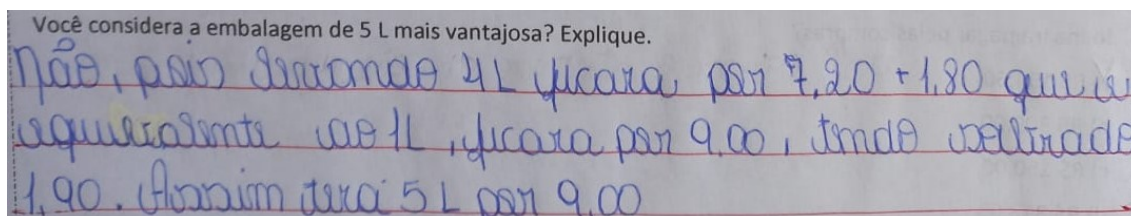 Você considera a embalagem de 5 L mais vantajosa? Explique.
Não, pois somando 4L ficara por 7,20 + 1,80 que é
equivalente ao 1L, ficara por 9,00, tendo
1,90. Assim terá 5 L por 9,00